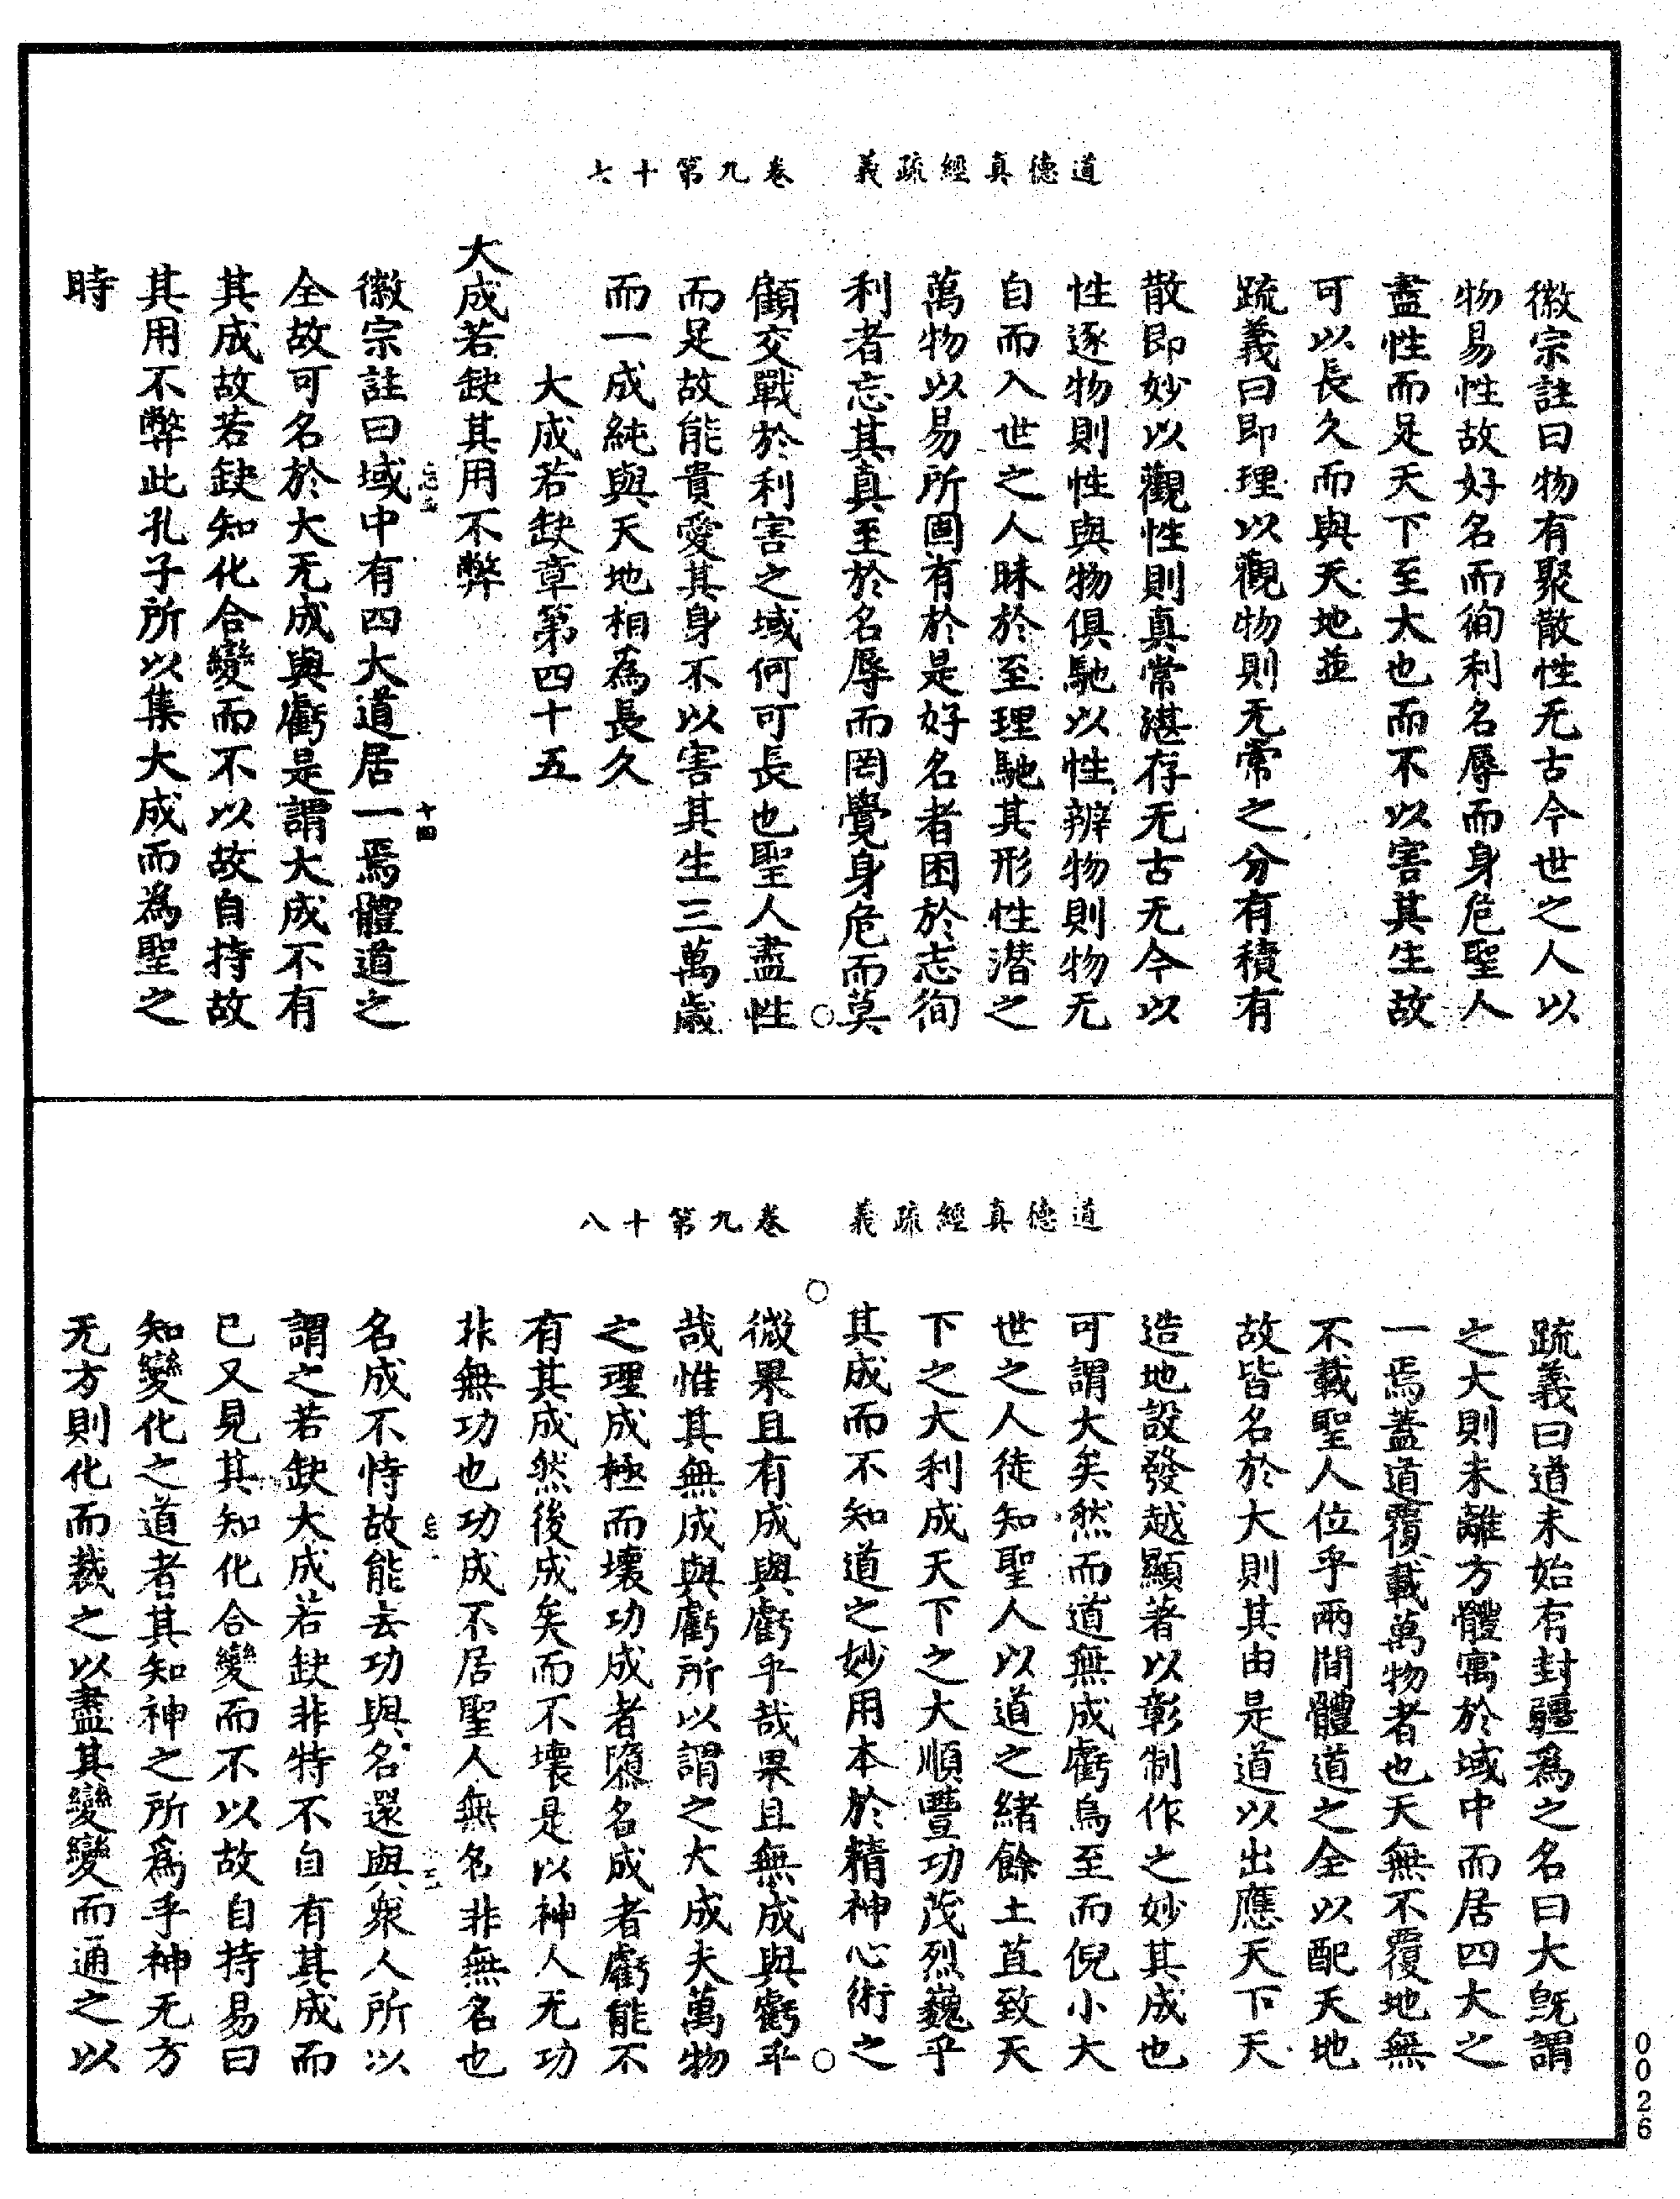 道德真經疏義　卷九第十七
徽宗註曰物有聚散性无古今世之人以
物易性故好名而徇利名辱而身危聖人
盡性而足天下至大也而不以害其生故
可以長久而與天地並
疏義曰即理以觀物則无常之分有積有
散即妙以觀性則真常湛存无古无今以
性逐物則性與物俱馳以性辨物則物无
自而入世之人昧於至理馳其形性潛之
萬物以易所固有於是好名者困於志徇
利者忘其真至於名辱而罔覺身危而莫
顧交戰於利害之域何可長也聖人盡性
而足故能貴愛其身不以害其生三萬歲
而一成純與天地相為長久
大成若缺章第四十五
大成若缺其用不弊
十四
徽宗註曰域中有四大道居一焉體道之
全故可名於大无成與虧是謂大成不有
其成故若缺知化合變而不以故自持故
其用不弊此孔子所以集大成而為聖之
時
道德真經疏義　卷九第十八
疏義曰道未始有封疆為之名曰大既謂
之大則未離方體寓於域中而居四大之
一焉蓋道覆載萬物者也天無不覆地無
不載聖人位乎兩間體道之全以配天地
故皆名於大則其由是道以出應天下天
造地設發越顯著以彰制作之妙其成也
可謂大矣然而道無成虧烏至而倪小大
世之人徒知聖人以道之緒餘土苴致天
下之大利成天下之大順豐功茂烈巍乎
其成而不知道之妙用本於精神心術之
微果且有成與虧乎哉果且無成與虧乎
哉惟其無成與虧所以謂之大成夫萬物
之理成極而壞功成者隳名成者虧能不
有其成然後成矣而不壞是以神人无功
非無功也功成不居聖人無名非無名也
名成不恃故能去功與名還與衆人所以
謂之若缺大成若缺非特不自有其成而
已又見其知化合變而不以故自持易曰
知變化之道者其知神之所為乎神无方
无方則化而裁之以盡其變變而通之以
0026